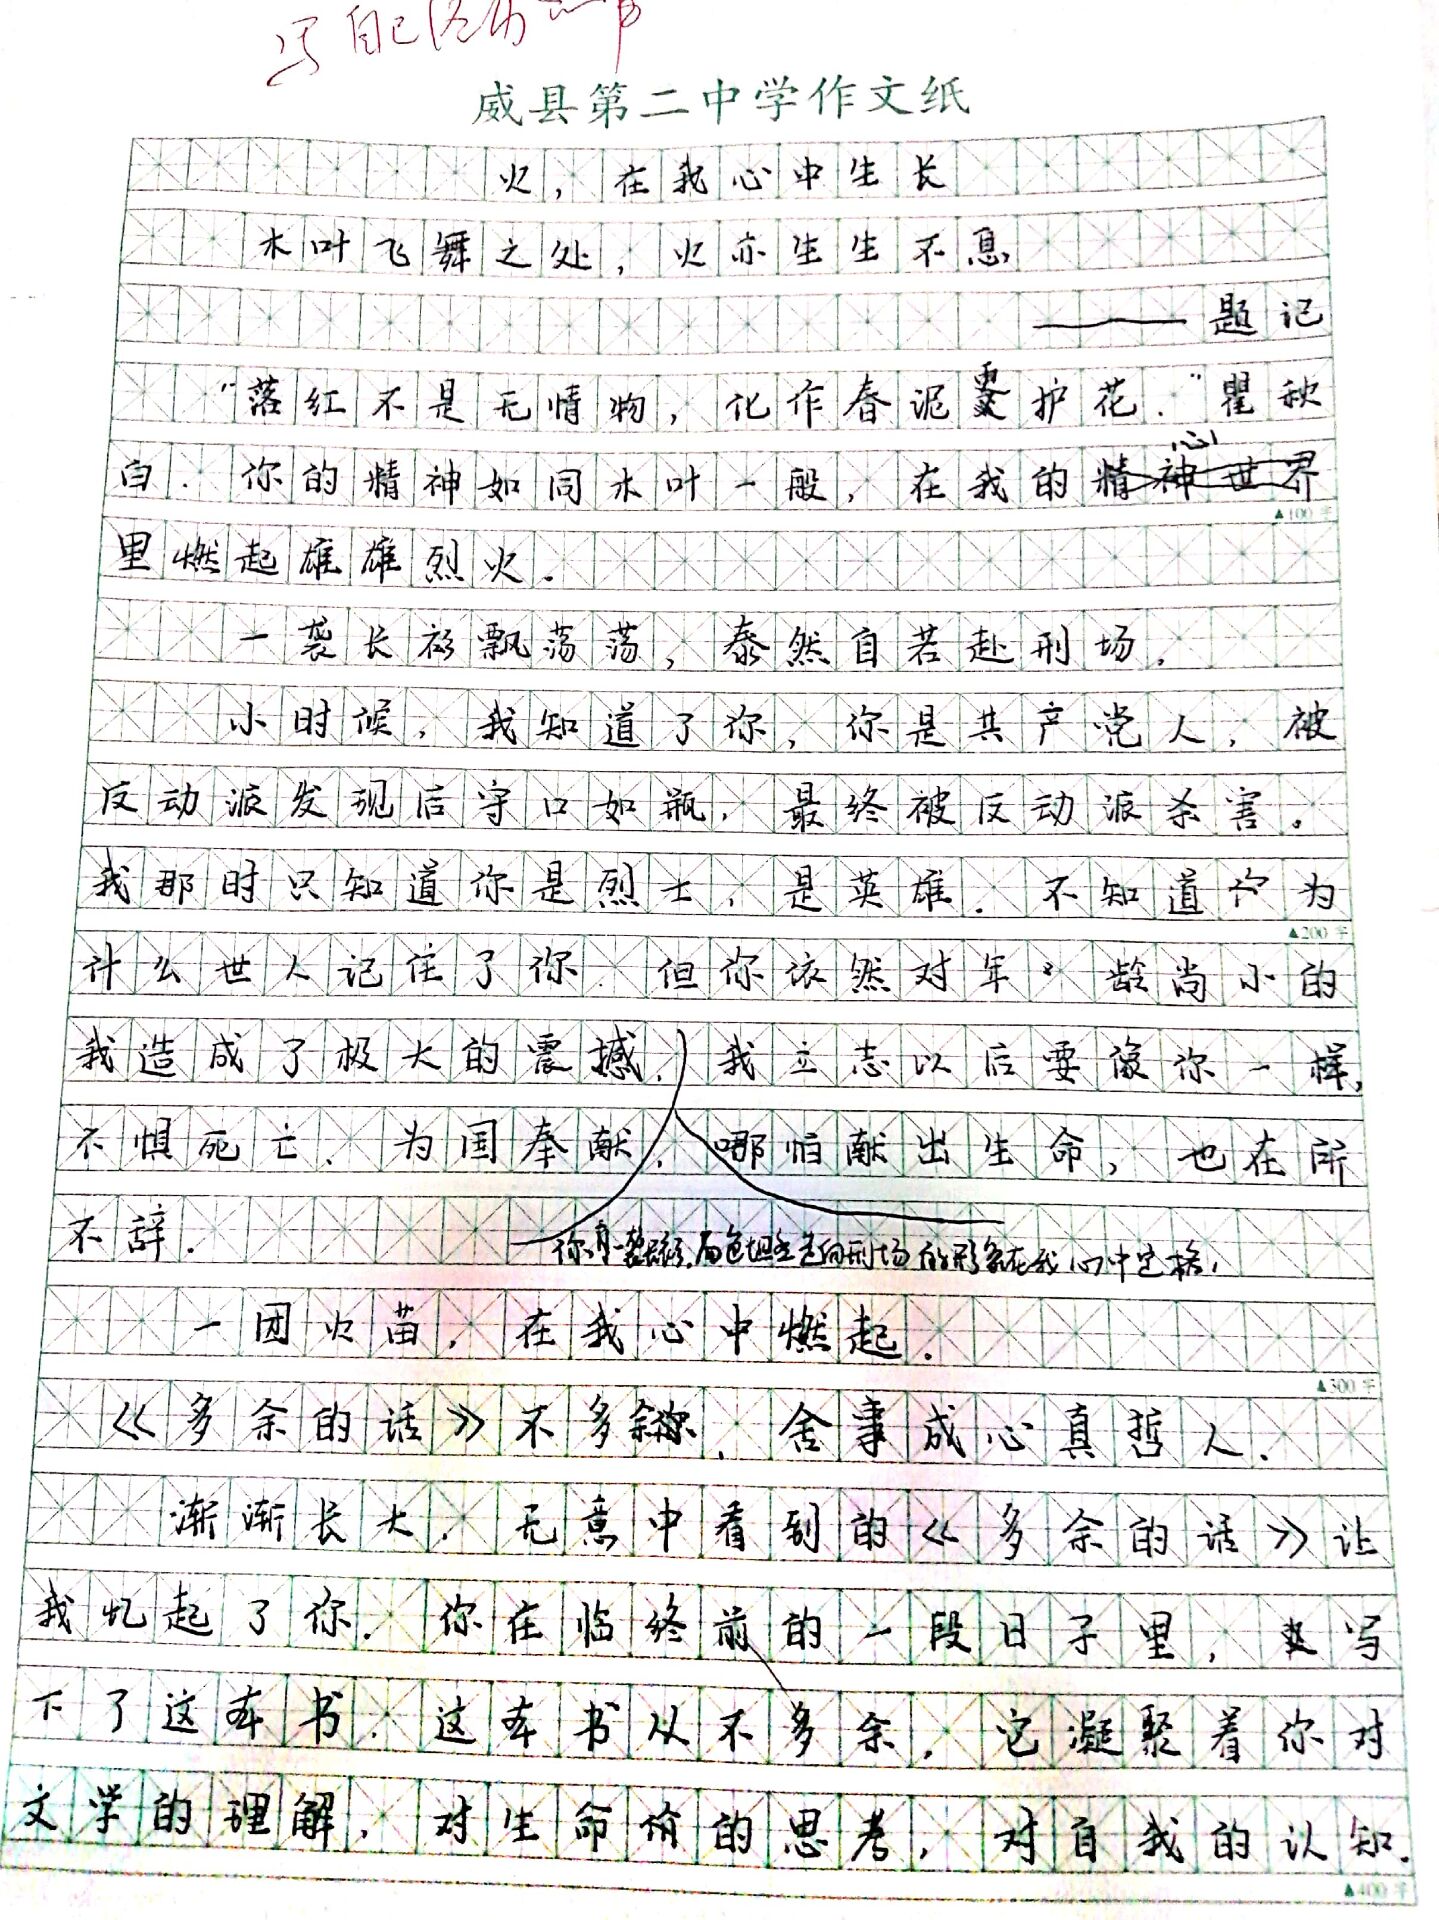 写自己
威县第二中学作文纸
火，在我心中生长
木叶飞舞之处，火亦生生不息
——题记
“落红不是无情物，化作春泥更护花.”瞿秋
白.你的精神如同木叶一般，在我的心
▲100字
里燃起雄雄烈火.
一袭长衫飘荡荡，泰然自若赴刑场.
小时候，我知道了你，你是共产党人，被
反动派发现后守口如瓶，最终被反动派杀害。
我那时只知道你是烈士，是英雄.不知道你为
▲200字
什么世人记住了你.但你依然对年龄尚小的
我造成了极大的震撼.我立志以后要像你一样，
不惧死亡.为国奉献，哪怕献出生命，也在所
不辞.
你身一袭长衫，面色坦然走向刑场的形象在我心中定格，
一团火苗，在我心中燃起.
▲300字
《多余的话》不多余，舍事成心真哲人.
渐渐长大，无意中看到的《多余的话》让
我忆起了你.你在临终前的一段日子里，写
下了这本书.这本书从不多余，它凝聚着你对
文学的理解，对生命价的思考，对自我的认知.
▲400字